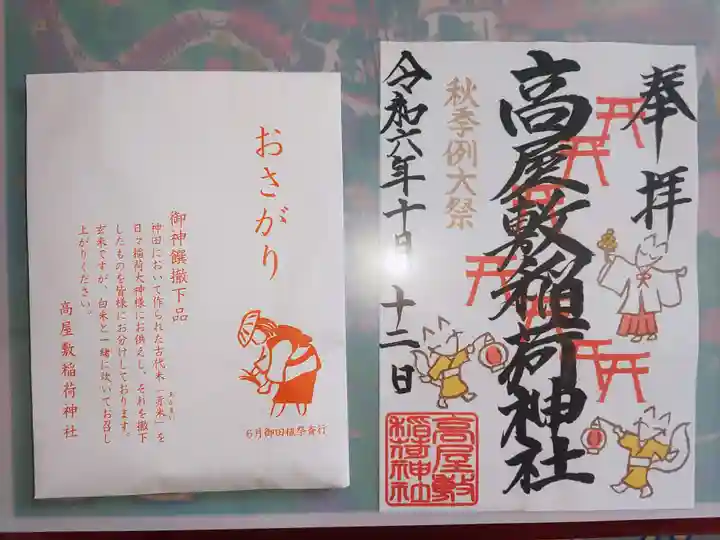 おさがり
御神饌撤下品
神田において作られた古代米「芽米」を
日々稲荷大神様にお供えし、それを撤下
したものを皆様にお分けしております。
玄米ですが、白米と一緒に炊いてお召し
上がりください。
高屋敷稲荷神社
6月御田植祭斎行
奉拝
高屋敷稲荷神社
秋季例大祭
令和六年十月十二日
高屋敷
稲荷神社